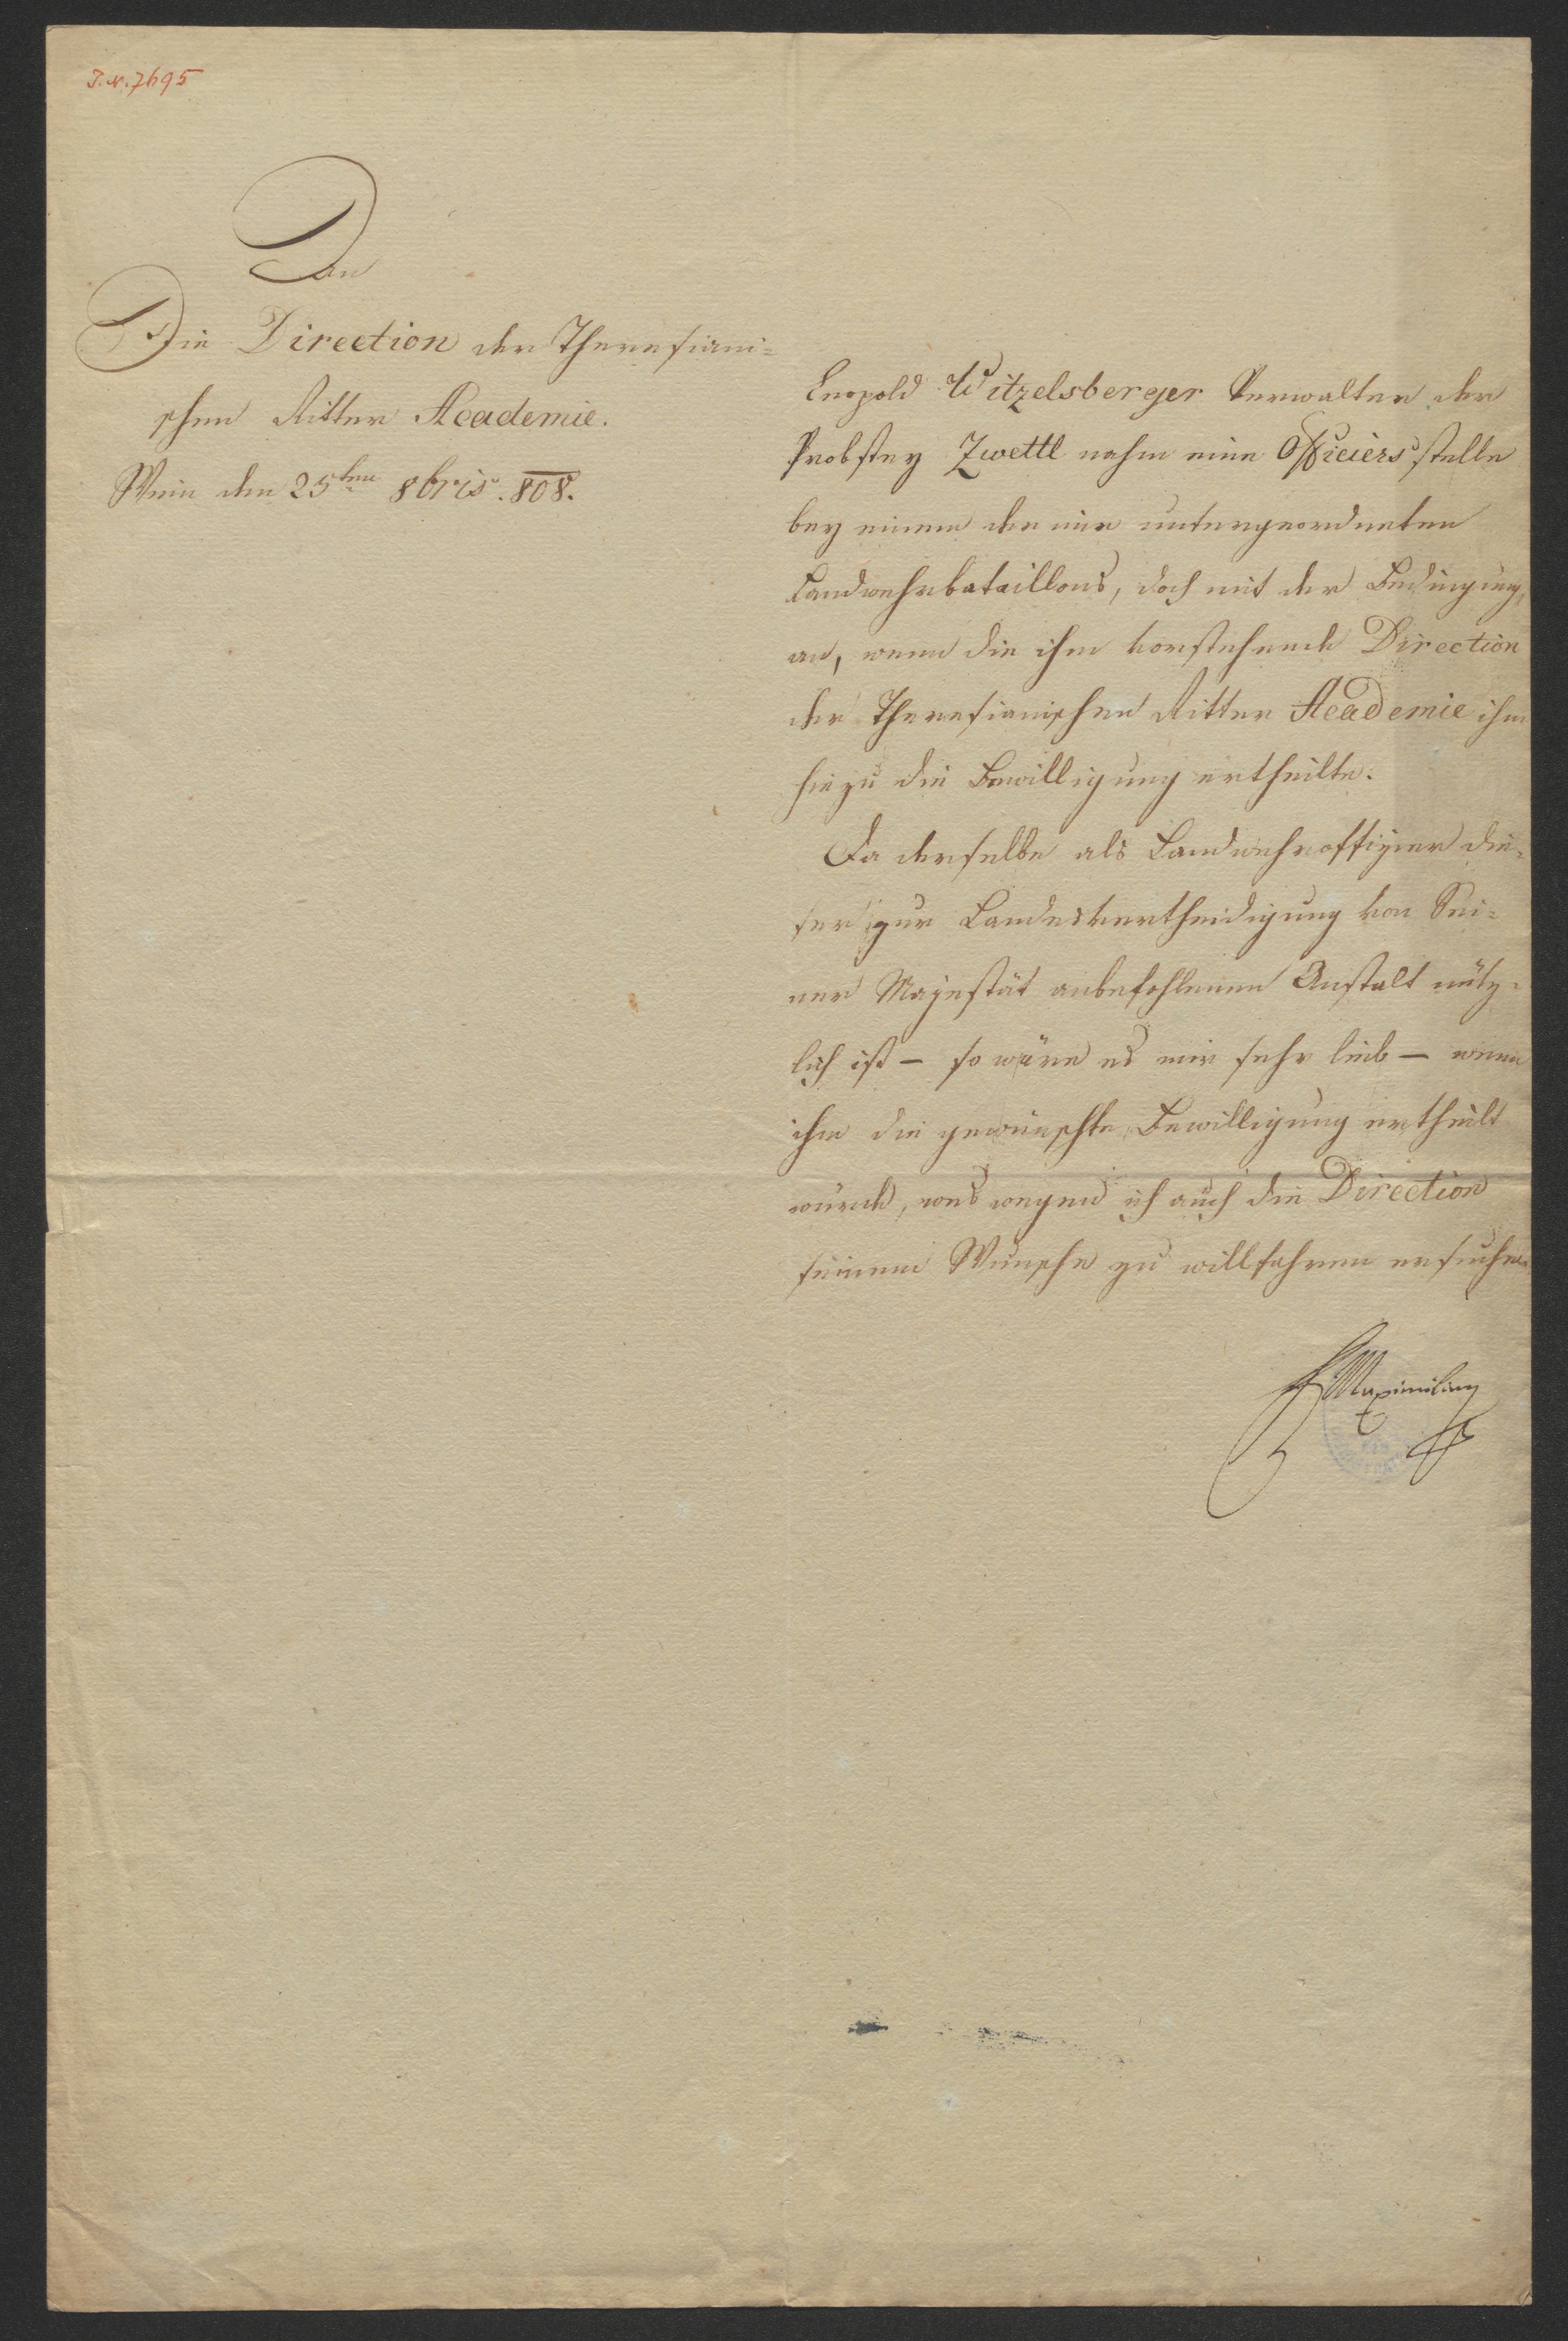 I. N. 7695
An
Die Direction der Theresiani=
schen Ritter Academie.
Wien den 25ten 8bris. 808.
Leopold Witzelsberger Verwalter der
Probstey Zwettl nahm eine Officiersstelle
bey einem der mir untergeordneten
Landwehrbataillons, doch mit der Bedingung,
an, wenn die ihm vorstehende Direction
der Theresianischen Ritter Academie ihm
hiezu die Bewilligung ertheilte.
Da derselbe als Landwehroffizier die=
ser zur Landesvertheidigung von Sei=
ner Majestät anbefohlenen Anstalt nütz=
lich ist – so wäre es mir sehr lieb – wenn
ihm die gewünschte Bewilligung ertheilt
würde, was wegen ich auch die Direction
seinem Wunsche zu willfahren ersuche.
Maximilian